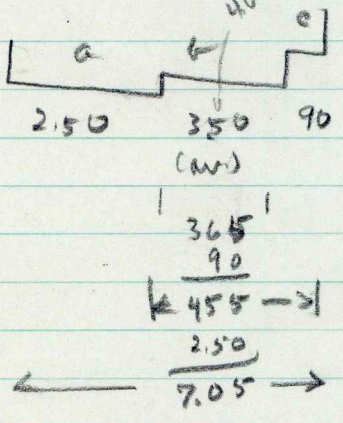 40
a b c
2.50 350 90
(av.)
365
90
455
2.50
7.05